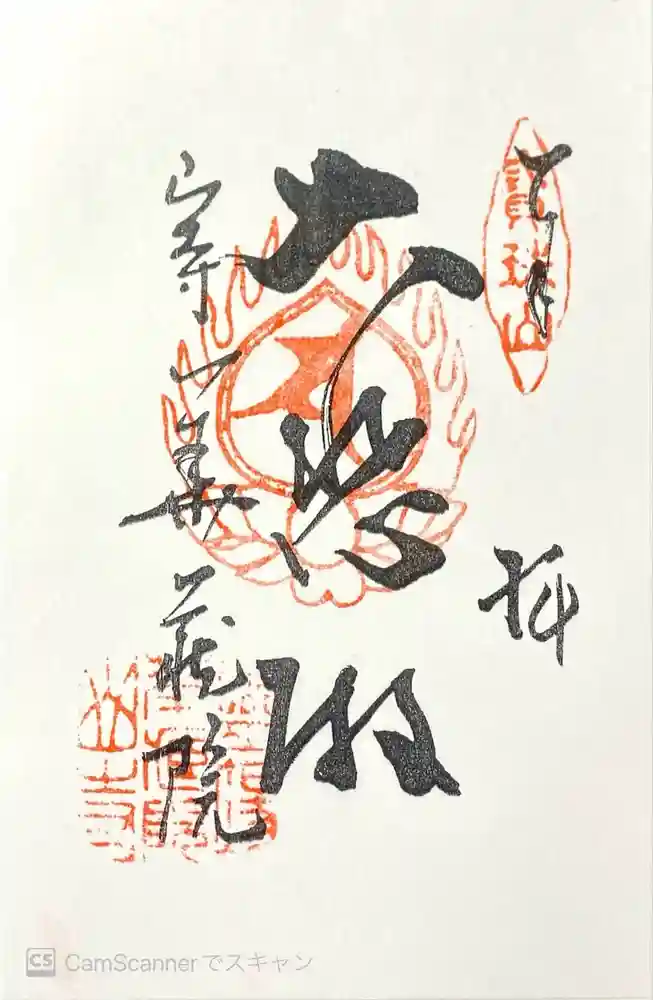 奉拝
寶珠山
大悲殿
山寺
華蔵院
CS CamScannerでスキャン